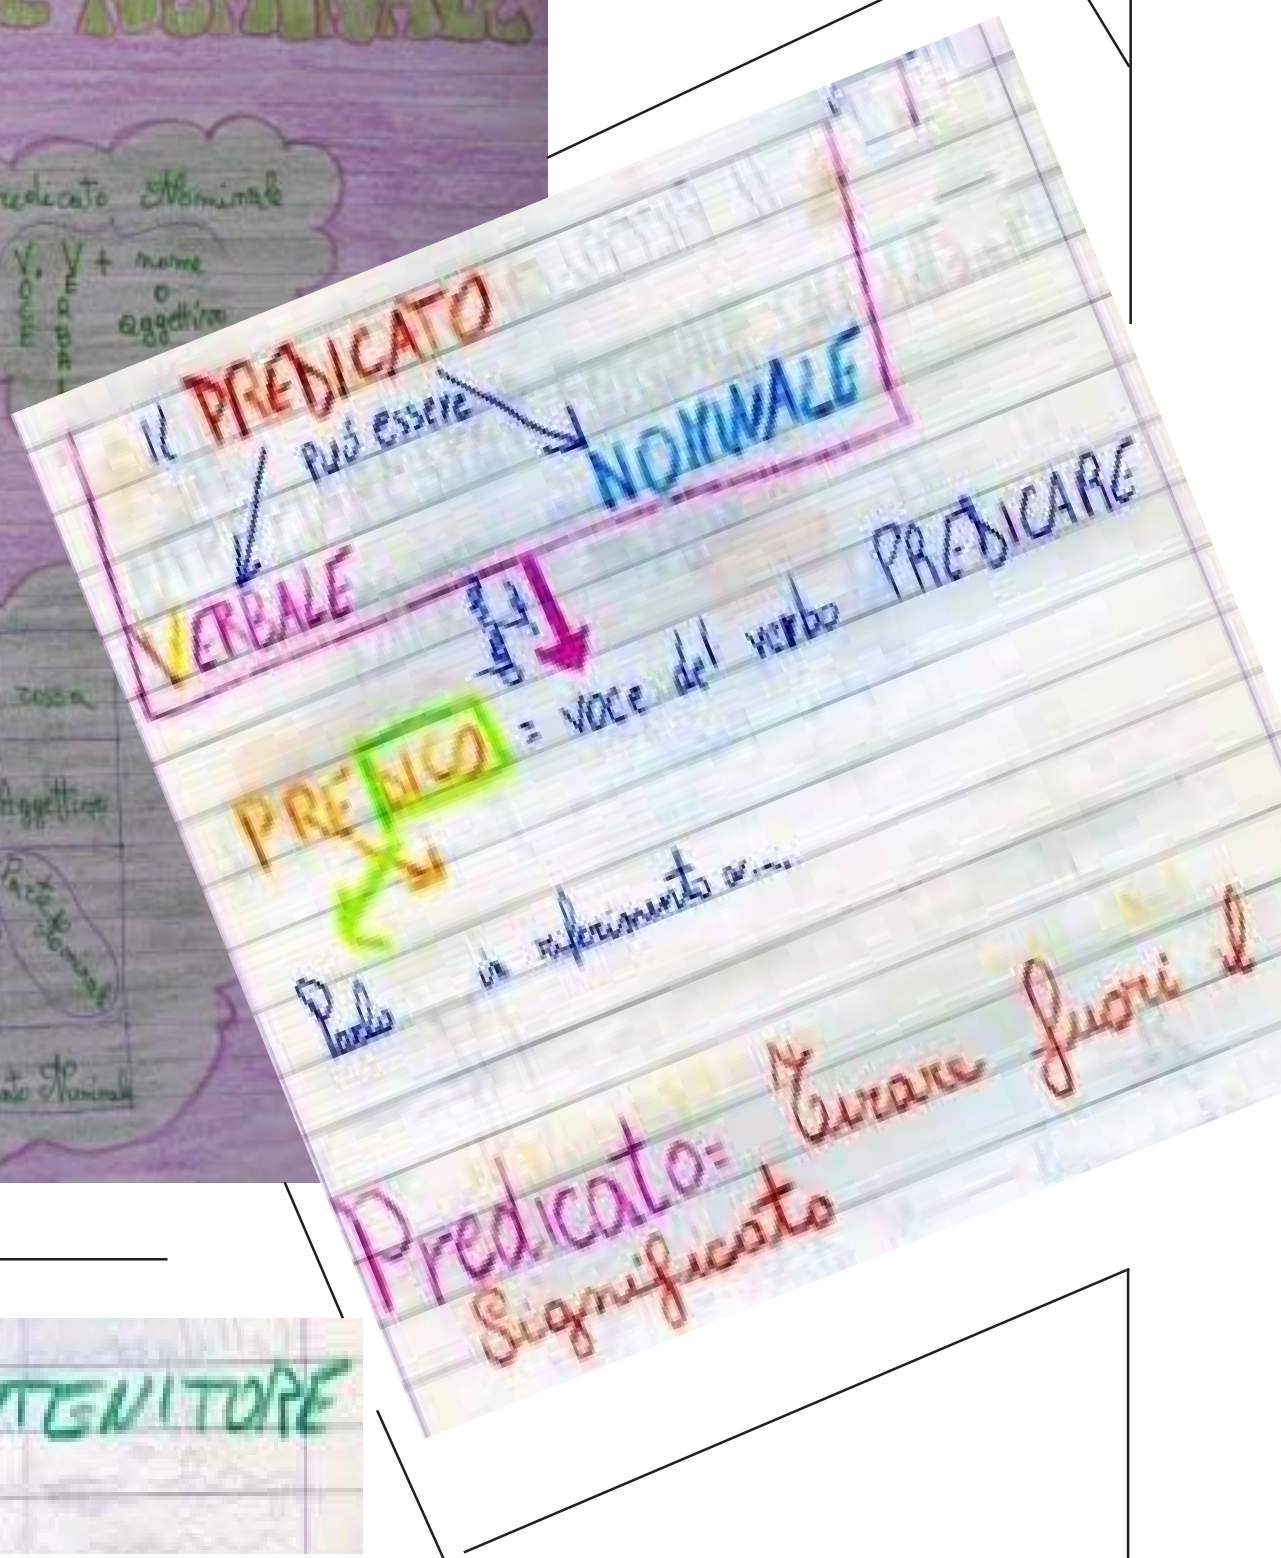 NOMINALE
Predicato Nominale
V. V + nome
VOCE VERBALE
o
aggettivo
cosa
Aggettivo
Nominale
Il PREDICATO
può essere
NOMINALE
VERBALE
PREDICO = voce del verbo PREDICARE
Parlo in riferimento a...
Predicato= Tirare fuori il
Significato
TENITORE